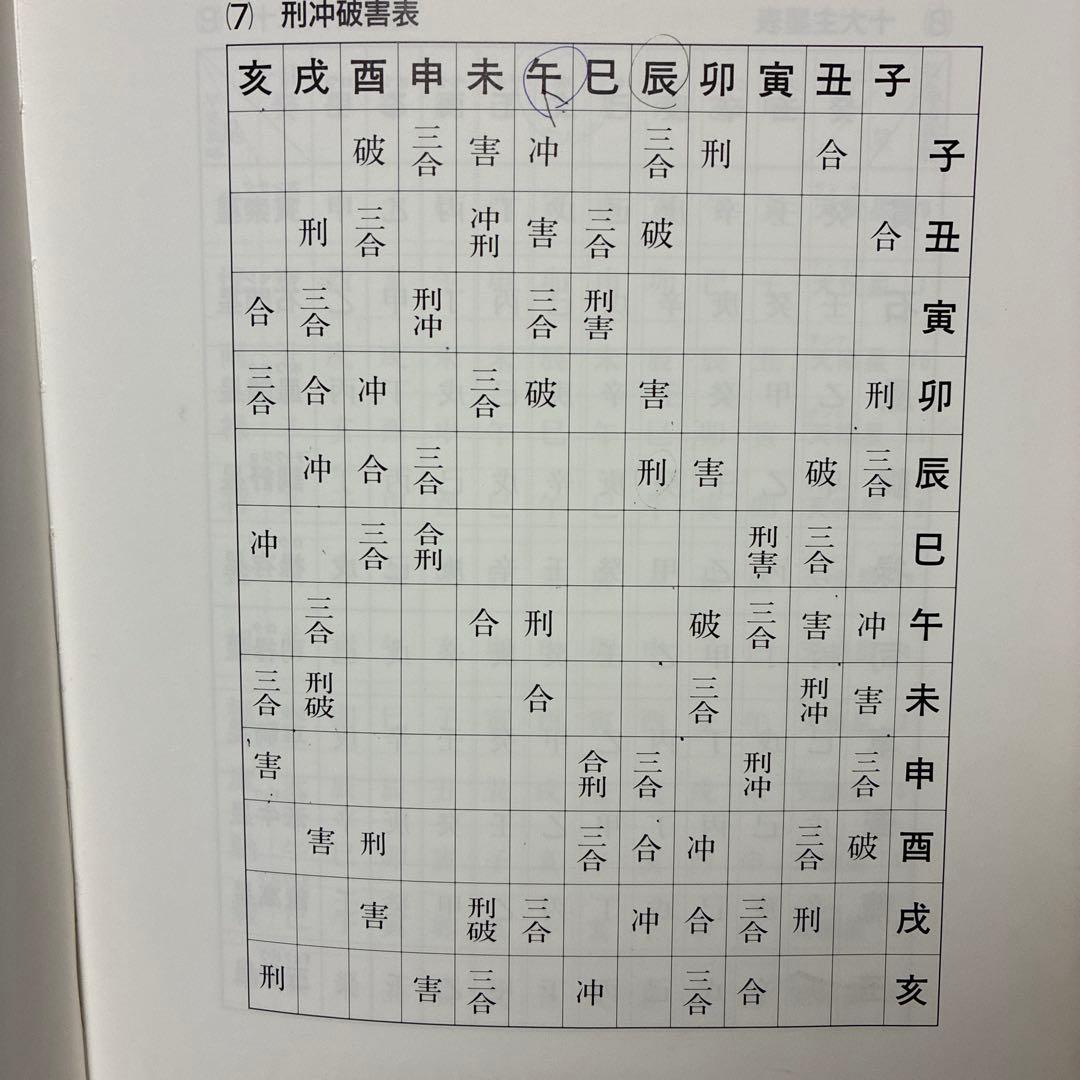 (7) 刑冲破害表
亥 戌 酉 申 未 午 巳 辰 卯 寅 丑 子
破 三合 害 冲 三合 刑 合 子
刑 三合 冲刑 害 三合 破 合 丑
合 三合 刑冲 三合 刑害 寅
三合 合 冲 三合 破 害 刑 卯
冲 合 三合 刑 害 破 三合 辰
冲 三合 合刑 刑害 三合 巳
三合 合 刑 破 三合 害 冲 午
三合 刑破 合 三合 刑冲 害 未
害 合刑 三合 刑冲 三合 申
害 刑 三合 合 冲 三合 破 酉
害 刑破 三合 冲 合 三合 刑 戌
刑 害 三合 冲 三合 合 亥